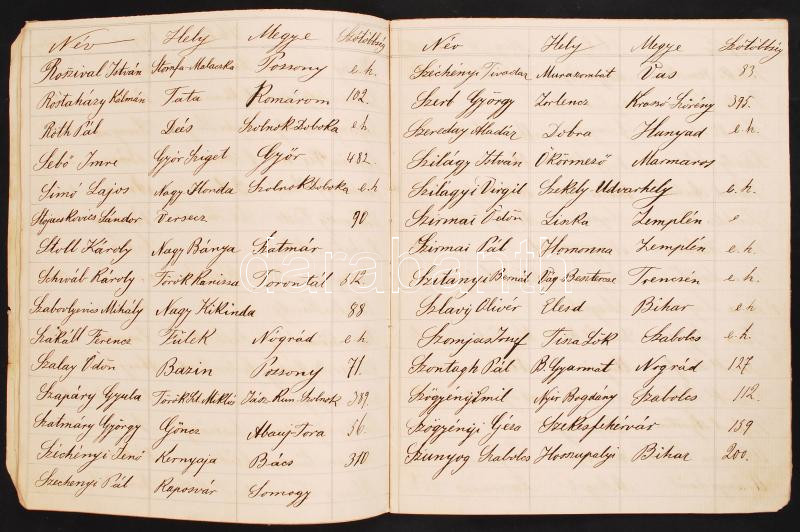 Név Hely Megye Szótöbbség
Rosival István Stomfa-Malaczka Pozsony e.h.
Rostaházy Kálmán Tata Komárom 102.
Róth Pál Dés Szolnok Doboka e.h
Sebő Imre Győr Sziget Győr 482.
Simó Lajos Nagy Honda Szolnok Doboka e.h
Stojacskovics Sándor Versecz 90
Stoll Károly Nagy Bánya Szatmár
Schváb Károly Török Kanissa Torontál 512.
Nagy Kikinda 88
Szakáll Ferencz Fülek Nógrád e.h.
Szalay Ödön Bazin Pozsony 71.
Szapáry Gyula Török Szt Miklós Jász-Kun-Szolnok 389
Szatmáry György Göncz Abauj-Torna 56.
Széchényi Jenő Kernyaja Bács 310
Széchenyi Pál Kaposvár Somogy
Név Hely Megye Szótöbbség
Széchényi Tivadar Muraszombat Vas 83.
Szerb György Zorlencz Krassó Szörény 395.
Szereday Aladár Dobra Hunyad e.h.
Szilágy István Ökörmező Marmaros
Szilagyi Virgil Szekely-Udvarhely e.h.
Szirmai Ödön Liska Zemplén e
Szirmai Pál Homonna Zemplén e.h.
Szitányi Bernát Vág Besztercze Trencsén e.h.
Szlávÿ Olivér Elesd Bihar e.h
Szomjas Jósef Tisza Lök Szabolcs e.h.
Szontagh Pál B. Gyarmat Nográd 127
Szögyényi Emil Nyir Bogdány Szabolcs 112.
Szögyényi Géza Székesfehérvár 159
Szunyog Szabolcs Hosszupalyi Bihar 200.
darabanth